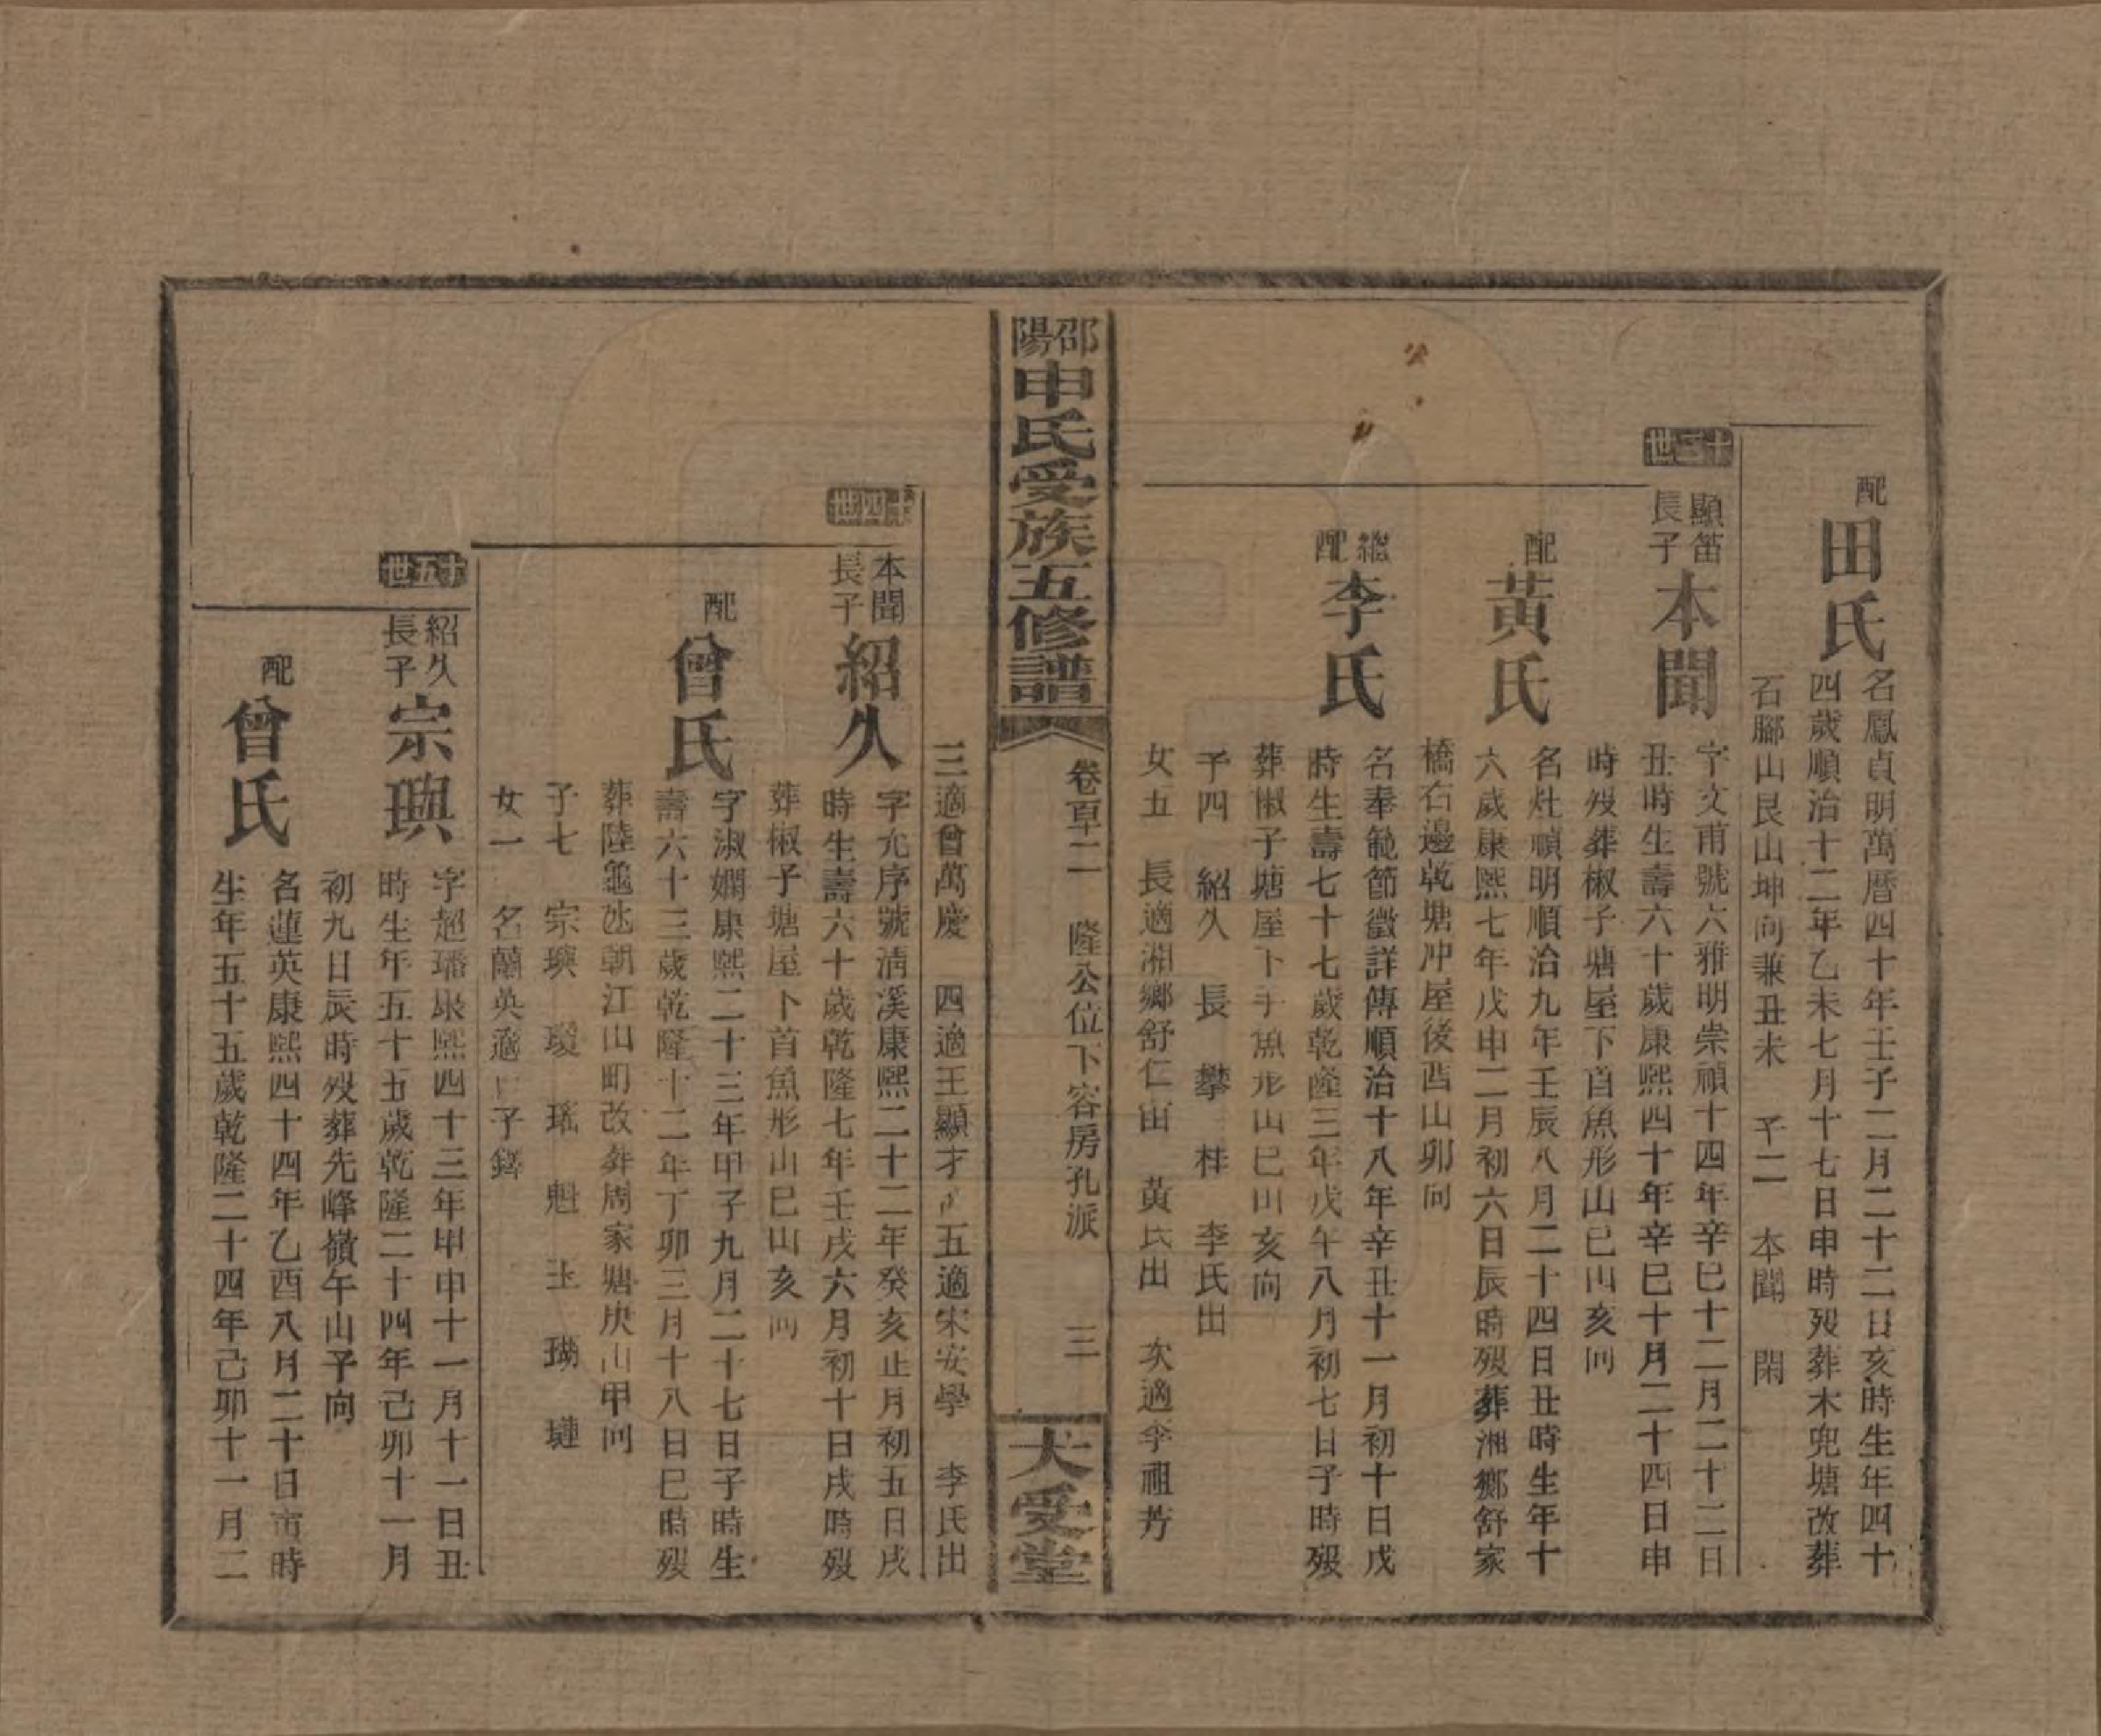 配
田氏
名鳳貞明萬曆四十年壬子二月二十二日亥時生年四十
四歲順治十二年乙未七月十七日申時歿葬木兜塘改葬
石腳山艮山坤向兼丑未 子二 本聞 閑
十三世
顯笛
長子
本聞
字文甫號六雅明崇禎十四年辛巳十二月二十二日
丑時生壽六十歲康熙四十年辛巳十月二十四日申
時歿葬椒子塘屋下首魚形山巳山亥向
配
黃氏
名灶順明順治九年壬辰八月二十四日丑時生年十
六歲康熙七年戊申二月初六日辰時歿葬湘鄉舒家
橋石邊乾塘冲屋後酉山卯向
繼
配
李氏
名奉範節徽詳傳順治十八年辛丑十一月初十日戌
時生壽七十七歲乾隆三年戊午八月初七日子時歿
葬椒子塘屋下手魚形山巳山亥向
子四 紹久 長 攀 桂 李氏出
女五 長適湘鄉舒仁宙 黃氏出 次適李祖芳
邵陽申氏受族五修譜
卷百二 隆公位下容房孔派 三
大受堂
三適曾萬慶 四適王顯才 五適宋安學 李氏出
十四世
本聞
長子
紹久
字允序號清溪康熙二十二年癸亥正月初五日戌
時生壽六十歲乾隆七年壬戌六月初十日戌時歿
葬椒子塘屋下首魚形山巳山亥向
配
曾氏
字淑嫻康熙二十三年甲子九月二十七日子時生
壽六十三歲乾隆十二年丁卯三月十八日巳時歿
葬陸龜氹朝江山町改葬周家塘庚山甲向
子七 宗璵 璦 瑤 魁 玉 璓 璉
女一 名蘭英適 子鑄
十五世
紹久
長子
宗璵
字超璠康熙四十三年甲申十一月十一日丑
時生年五十五歲乾隆二十四年己卯十一月
初九日辰時歿葬先峰嶺午山子向
配
曾氏
名蓮英康熙四十四年乙酉八月二十日亥時
生年五十五歲乾隆二十四年己卯十一月二